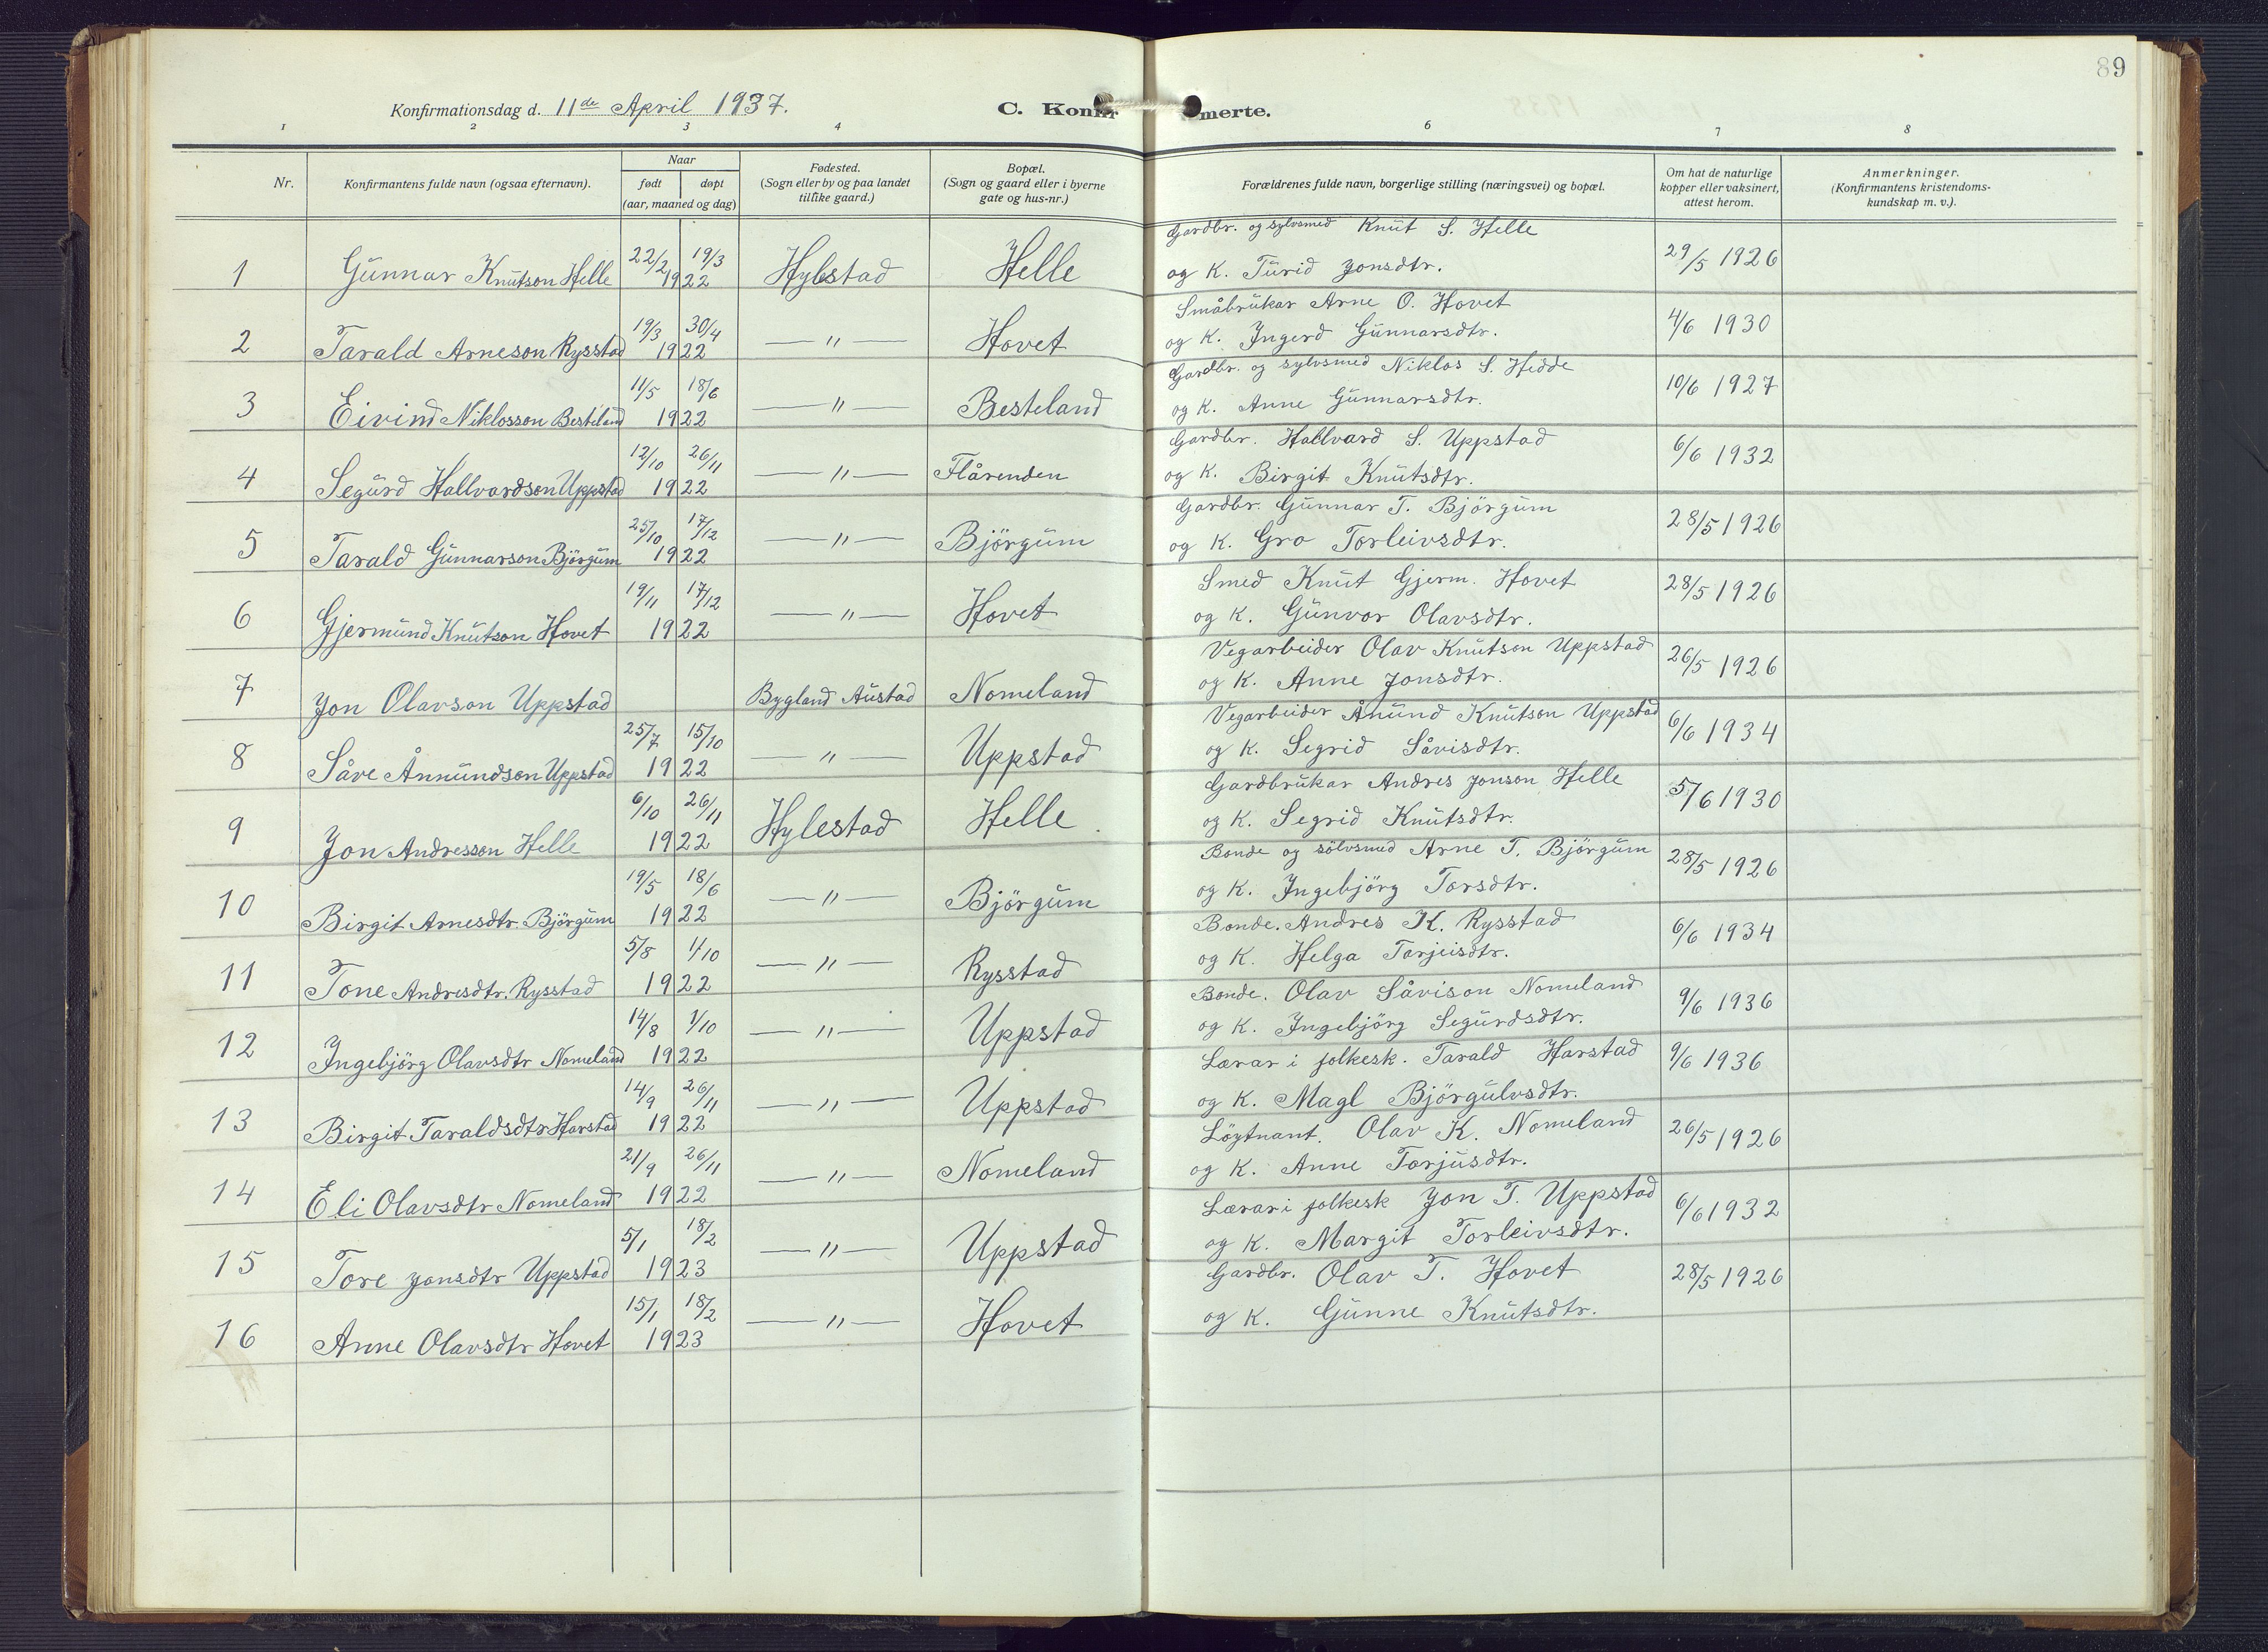 89
Konfirmationsdag d. 11de April 1937.
C. Konfirmerte.
1 2 3 4 6 7 8
Nr.
Konfirmantens fulde navn (ogsaa efternavn).
Naar
født døpt
(aar, maaned og dag)
Fødested.
(Sogn eller by og paa landet
tillike gaard.)
Bopæl.
(Sogn og gaard eller i byerne
gate og hus-nr.)
Forældrenes fulde navn, borgerlige stilling (næringsvei) og bopæl.
Om hat de naturlige
kopper eller vaksinert,
attest herom.
Anmerkninger.
(Konfirmantens kristendoms-
kundskap m. v.).
1 Gunnar Knutson Helle 22/2 19/3 1922 Hylestad Helle
Gardbr. og sylvsmed Knut S. Helle
og K. Turid Jonsdtr.
29/5 1926
2 Tarald Arneson Rysstad 19/3 30/4 1922 — " — Hovet
Småbrukar Arne O. Hovet
og K. Ingerd Gunnarsdtr.
4/6 1930
3 Eivind Niklosson Besteland 11/5 18/6 1922 — " — Besteland
Gardbr. og sylvsmed Niklos S. Hidde
og K. Anne Gunnarsdtr.
10/6 1927
4 Segurd Hallvardson Uppstad 12/10 26/11 1922 — " — Flårenden
Gardbr. Hallvard S. Uppstad
og K. Birgit Knutsdtr.
6/6 1932
5 Tarald Gunnarson Björgum 25/10 17/12 1922 — " — Björgum
Gardbr. Gunnar T. Björgum
og K. Gro Torleivsdtr.
28/5 1926
6 Gjermund Knutson Hovet 19/11 17/12 1922 — " — Hovet
Smed Knut Gjerm. Hovet
og K. Gunvor Olavsdtr.
28/5 1926
7 Jon Olavson Uppstad Bygland Austad Nomeland
Vegarbeider Olav Knutson Uppstad
og K. Anne Jonsdtr.
26/5 1926
8 Såve Ånnundson Uppstad 25/7 15/10 1922 — " — Uppstad
Vegarbeider Ånund Knutson Uppstad
og K. Segrid Såvisdtr.
6/6 1934
9 Jon Andresson Helle 6/10 26/11 1922 Hylestad Helle
Gardbrukar Andres Jonson Helle
og K. Segrid Knutsdtr.
5/6 1930
10 Birgit Arnesdtr. Björgum 19/5 18/6 1922 — " — Björgum
Bonde og sölvsmed Arne T. Björgum
og K. Ingebjörg Torsdtr.
28/5 1926
11 Tone Andresdtr. Rysstad 5/8 1/10 1922 — " — Rysstad
Bonde. Andres K. Rysstad
og K. Helga Torjeisdtr.
6/6 1934
12 Ingebjörg Olavsdtr Nomeland 14/8 1/10 1922 — " — Uppstad
Bonde. Olav Såvison Nomeland
og K. Ingebjörg Segurdsdtr.
9/6 1936
13 Birgit Taraldsdtr Harstad 14/9 26/11 1922 — " — Uppstad
Lærar i folkesk. Tarald Harstad
og K. Magl Björgulvsdtr.
9/6 1936
14 Eli Olavsdtr Nomeland 21/9 26/11 1922 — " — Nomeland
Löytnant. Olav K. Nomeland
og K. Anne Torjusdtr.
26/5 1926
15 Tore Jonsdtr Uppstad 5/1 18/2 1923 — " — Uppstad
Lærar i folkesk Jon T. Uppstad
og K. Margit Torleivsdtr.
6/6 1932
16 Anne Olavsdtr Hovet 15/1 18/2 1923 — " — Hovet
Gardbr. Olav T. Hovet
og K. Gunne Knutsdtr.
28/5 1926